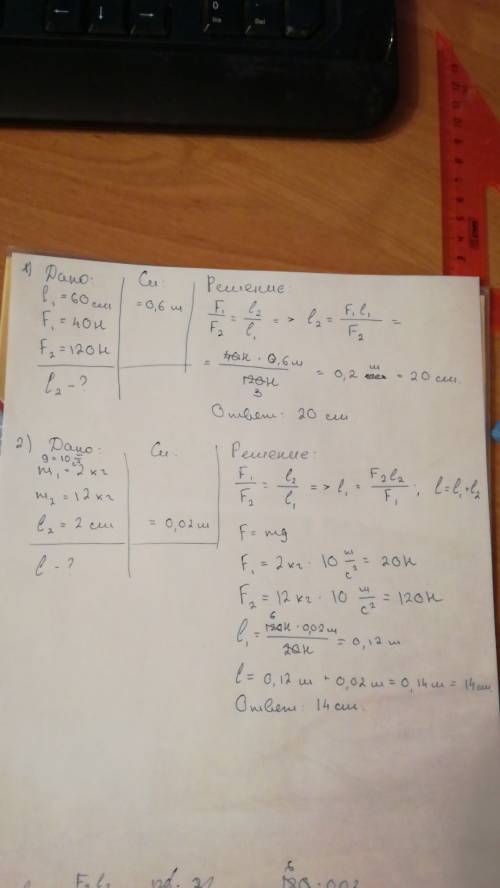 1) Дано:
l₁ = 60 см
F₁ = 40 Н
F₂ = 120 Н
l₂ - ?
Си:
= 0,6 м
Решение:
F₁/F₂ = l₂/l₁ => l₂ = F₁l₁/F₂ =
= 40Н · 0,6 м/120Н 3 = 0,2 м = 20 см.
Ответ: 20 см
2) Дано:
g = 10 м/с²
m₁ = 2 кг
m₂ = 12 кг
l₂ = 2 см
l - ?
Си:
= 0,02 м
Решение:
F₁/F₂ = l₂/l₁ => l₁ = F₂l₂/F₁ ; l = l₁ + l₂
F = mg
F₁ = 2 кг · 10 м/с² = 20Н
F₂ = 12 кг · 10 м/с² = 120Н
l₁ = 6 120Н · 0,02 м/20Н = 0,12 м
l = 0,12 м + 0,02 м = 0,14 м = 14 см
Ответ: 14 см.